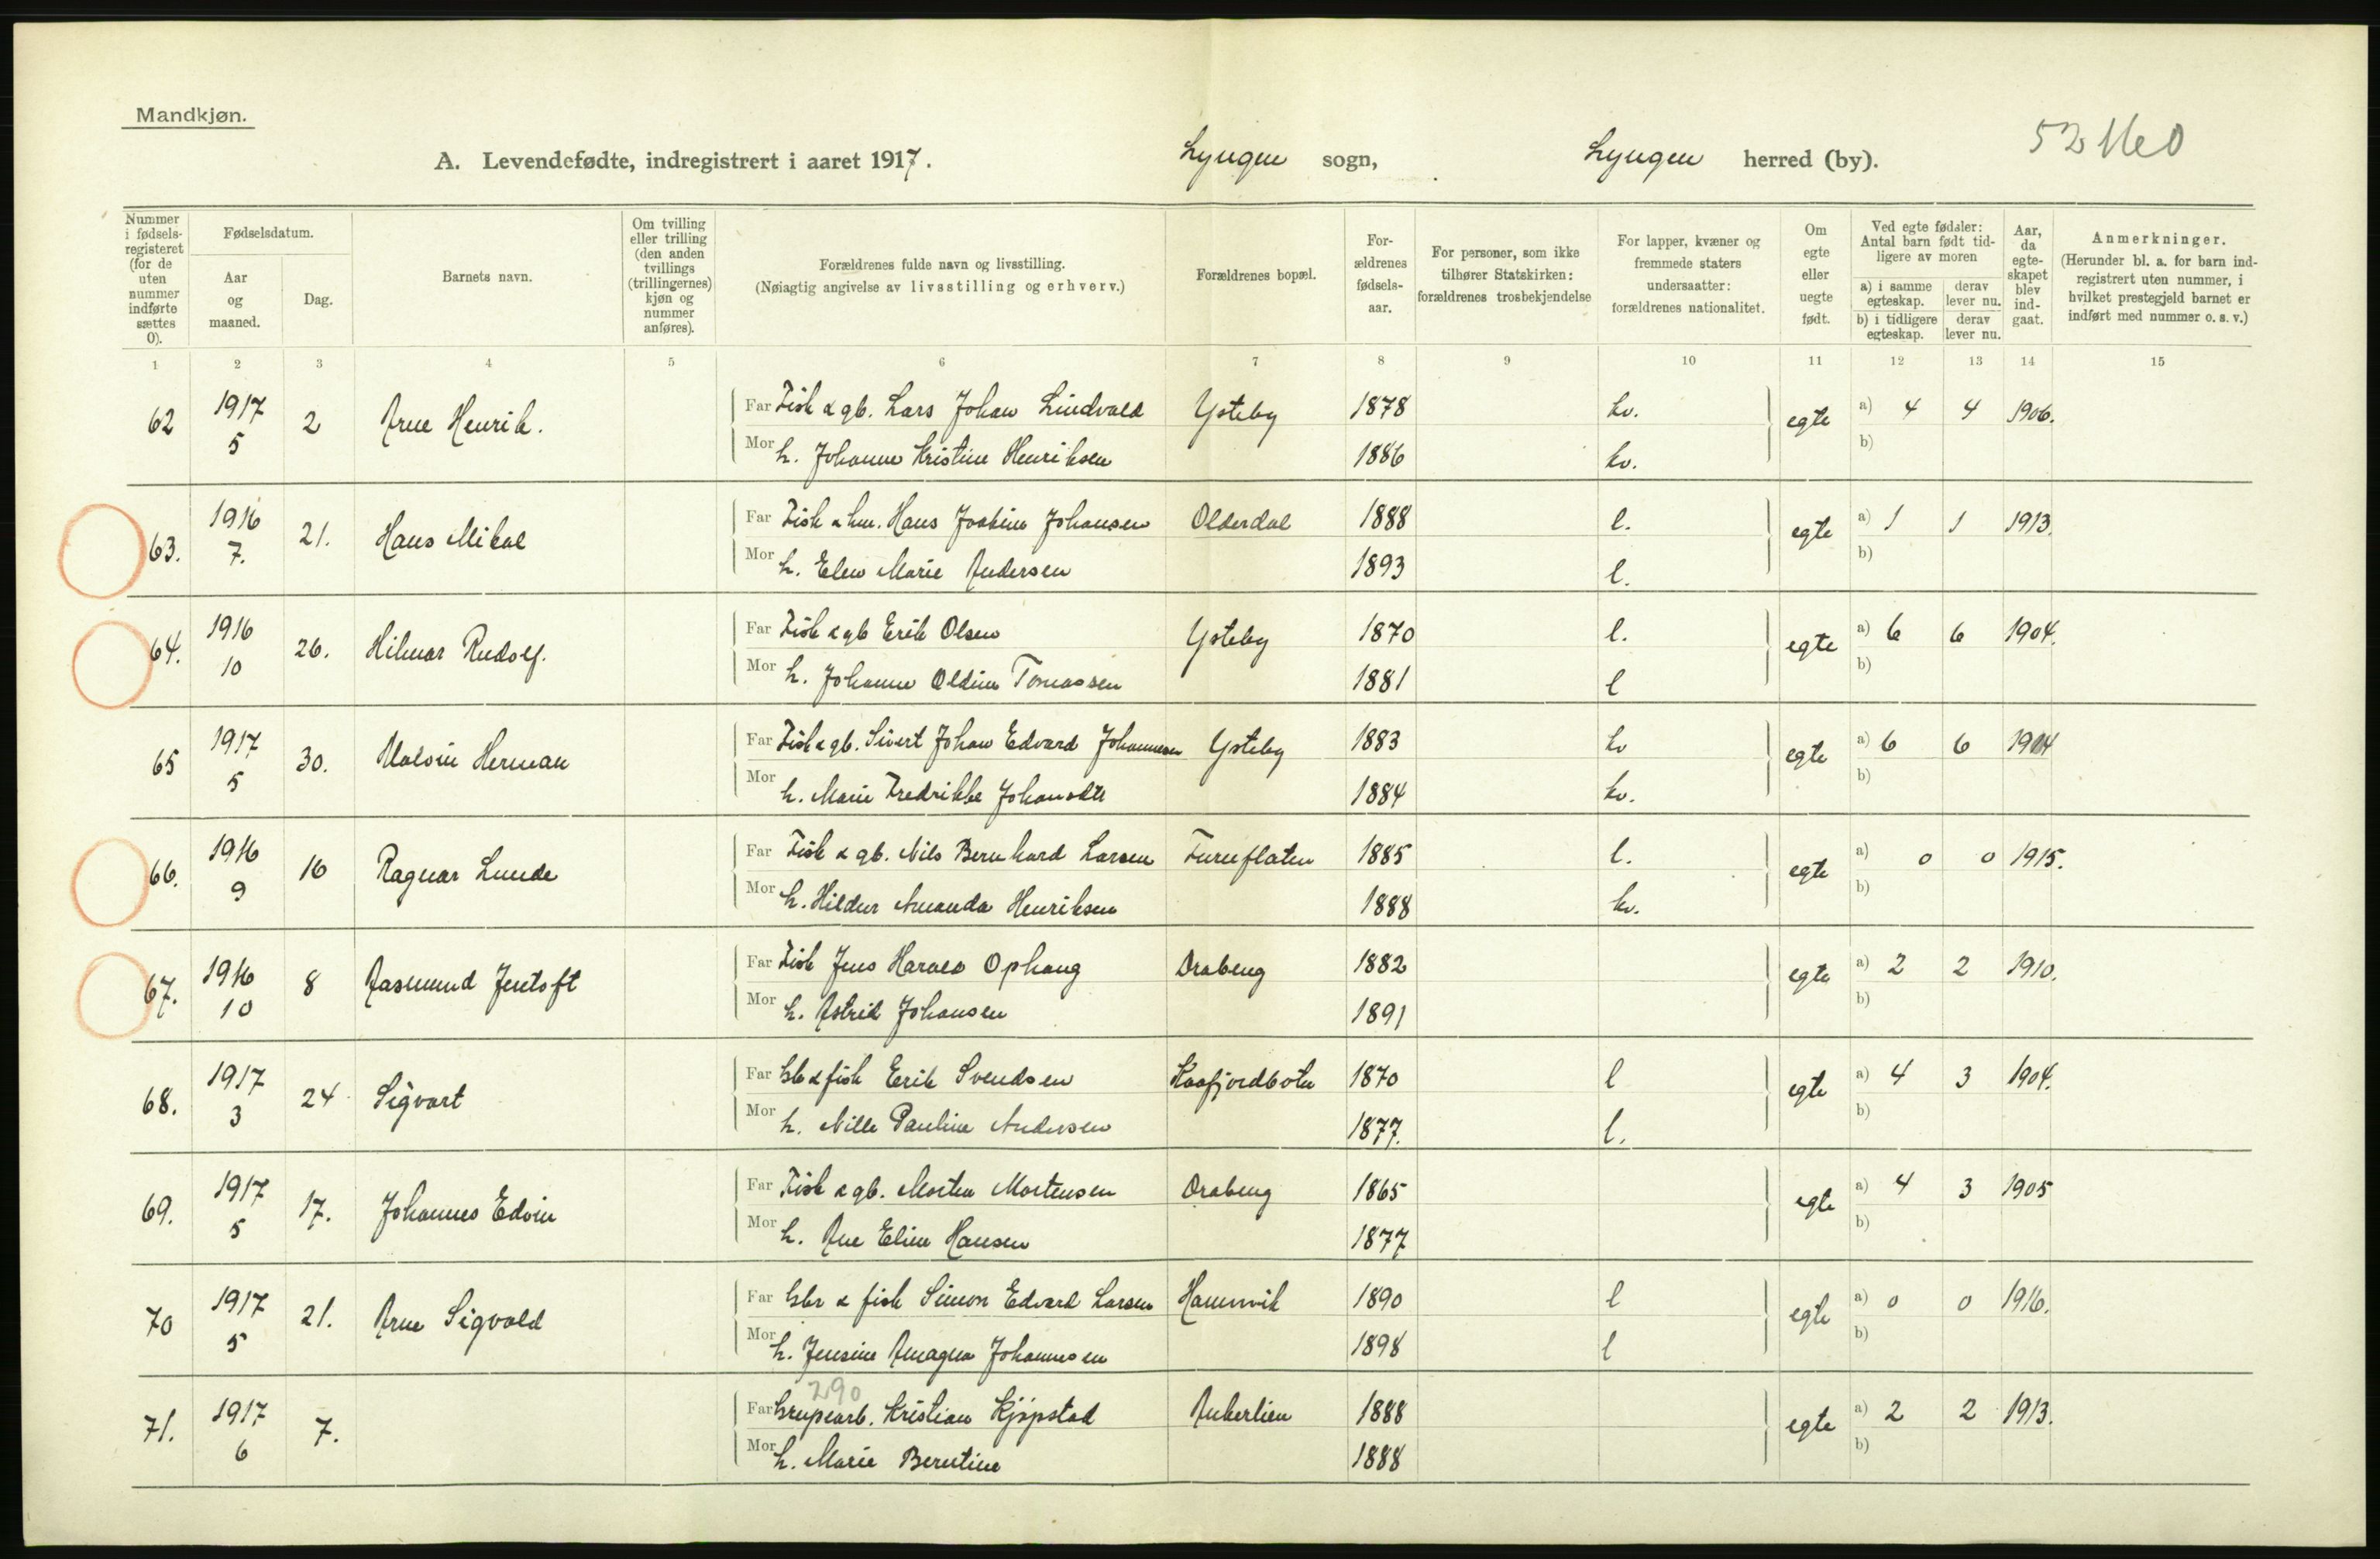 Mandkjøn.
A. Levendefødte, indregistrert i aaret 1917. Lyngen sogn, Lyngen herred (by).
Nummer i fødsels-registeret (for de uten nummer indførte sættes 0).
Fødselsdatum.
Aar og maaned.
Dag.
Barnets navn.
Om tvilling eller trilling (den anden tvillings (trillingernes) kjøn og nummer anføres).
Forældrenes fulde navn og livsstilling.
(Nøiagtig angivelse av livsstilling og erhverv.)
Forældrenes bopæl.
For-ældrenes fødsels-aar.
For personer, som ikke tilhører Statskirken: forældrenes trosbekjendelse
For lapper, kvæner og fremmede staters undersaatter: forældrenes nationalitet.
Om egte eller uegte født.
Ved egte fødsler: Antal barn født tid-ligere av moren
a) i samme egteskap. derav lever nu.
b) i tidligere egteskap. derav lever nu.
Aar, da egte-skapet blev ind-gaat.
Anmerkninger.
(Herunder bl. a. for barn ind-registrert uten nummer, i hvilket prestegjeld barnet er indført med nummer o. s. v.)
1 2 3 4 5 6 7 8 9 10 11 12 13 14 15
62 1917 5 2 Arne Henrik. Far Fisk & gb. Lars Johan Lindvald Ysteby 1878 kv. egte a) 4 4 1906.
Mor h. Johanne Kristine Henriksen 1886 kv. b)
63. 1916 7. 21. Hans Mikal Far Fisk & hm. Hans Joakim Johansen Olderdal 1888 l. egte a) 1 1 1913.
Mor h. Elen Marie Andersen 1893 l. b)
64. 1916 10 26. Hilmar Rudolf. Far Fisk & gb Erik Olsen Ysteby 1870 l. egte a) 6 6 1904.
Mor h. Johanne Oldine Tomassen 1881 l b)
65 1917 5 30. Malvin Herman Far Fisk & gb. Sivert Johan Edvard Johannesen Ysteby 1883 kv egte a) 6 6 1904
Mor h. Marie Fredrikke Johansdtr 1884 kv. b)
66. 1916 9 16 Ragnar Lunde Far Fisk & gb. Nils Bernhard Larsen Furuflaten 1885 l. egte a) 0 0 1915.
Mor h. Hildur Amanda Henriksen 1888 kv. b)
67. 1916 10 8 Aasmund Jentoft Far Fisk Jens Harald Ophaug Drabeng 1882 egte a) 2 2 1910.
Mor h. Astrid Johansen 1891 b)
68. 1917 3 24 Sigvart Far Gb & fisk Erik Svendsen Kaafjordbotn 1870 l egte a) 4 3 1904.
Mor h. Nille Pauline Andersen 1877. l. b)
69. 1917 5 17. Johannes Edvin Far Fisk & gb. Morten Mortensen Drabeng 1865 egte a) 4 3 1905
Mor h. Ane Eline Hansen 1877 b)
70 1917 5 21. Arne Sigvald Far Gbr & fisk Simon Edvard Larsen Hamnvik 1890 l egte a) 0 0 1916.
Mor h. Jensine Amagna Johannesen 1898 l b)
290
71. 1917 6 7. Far Grupearb. Kristian Kjöpstad Ankerlien 1888 egte a) 2 2 1913.
Mor h. Marie Berntine 1888 b)